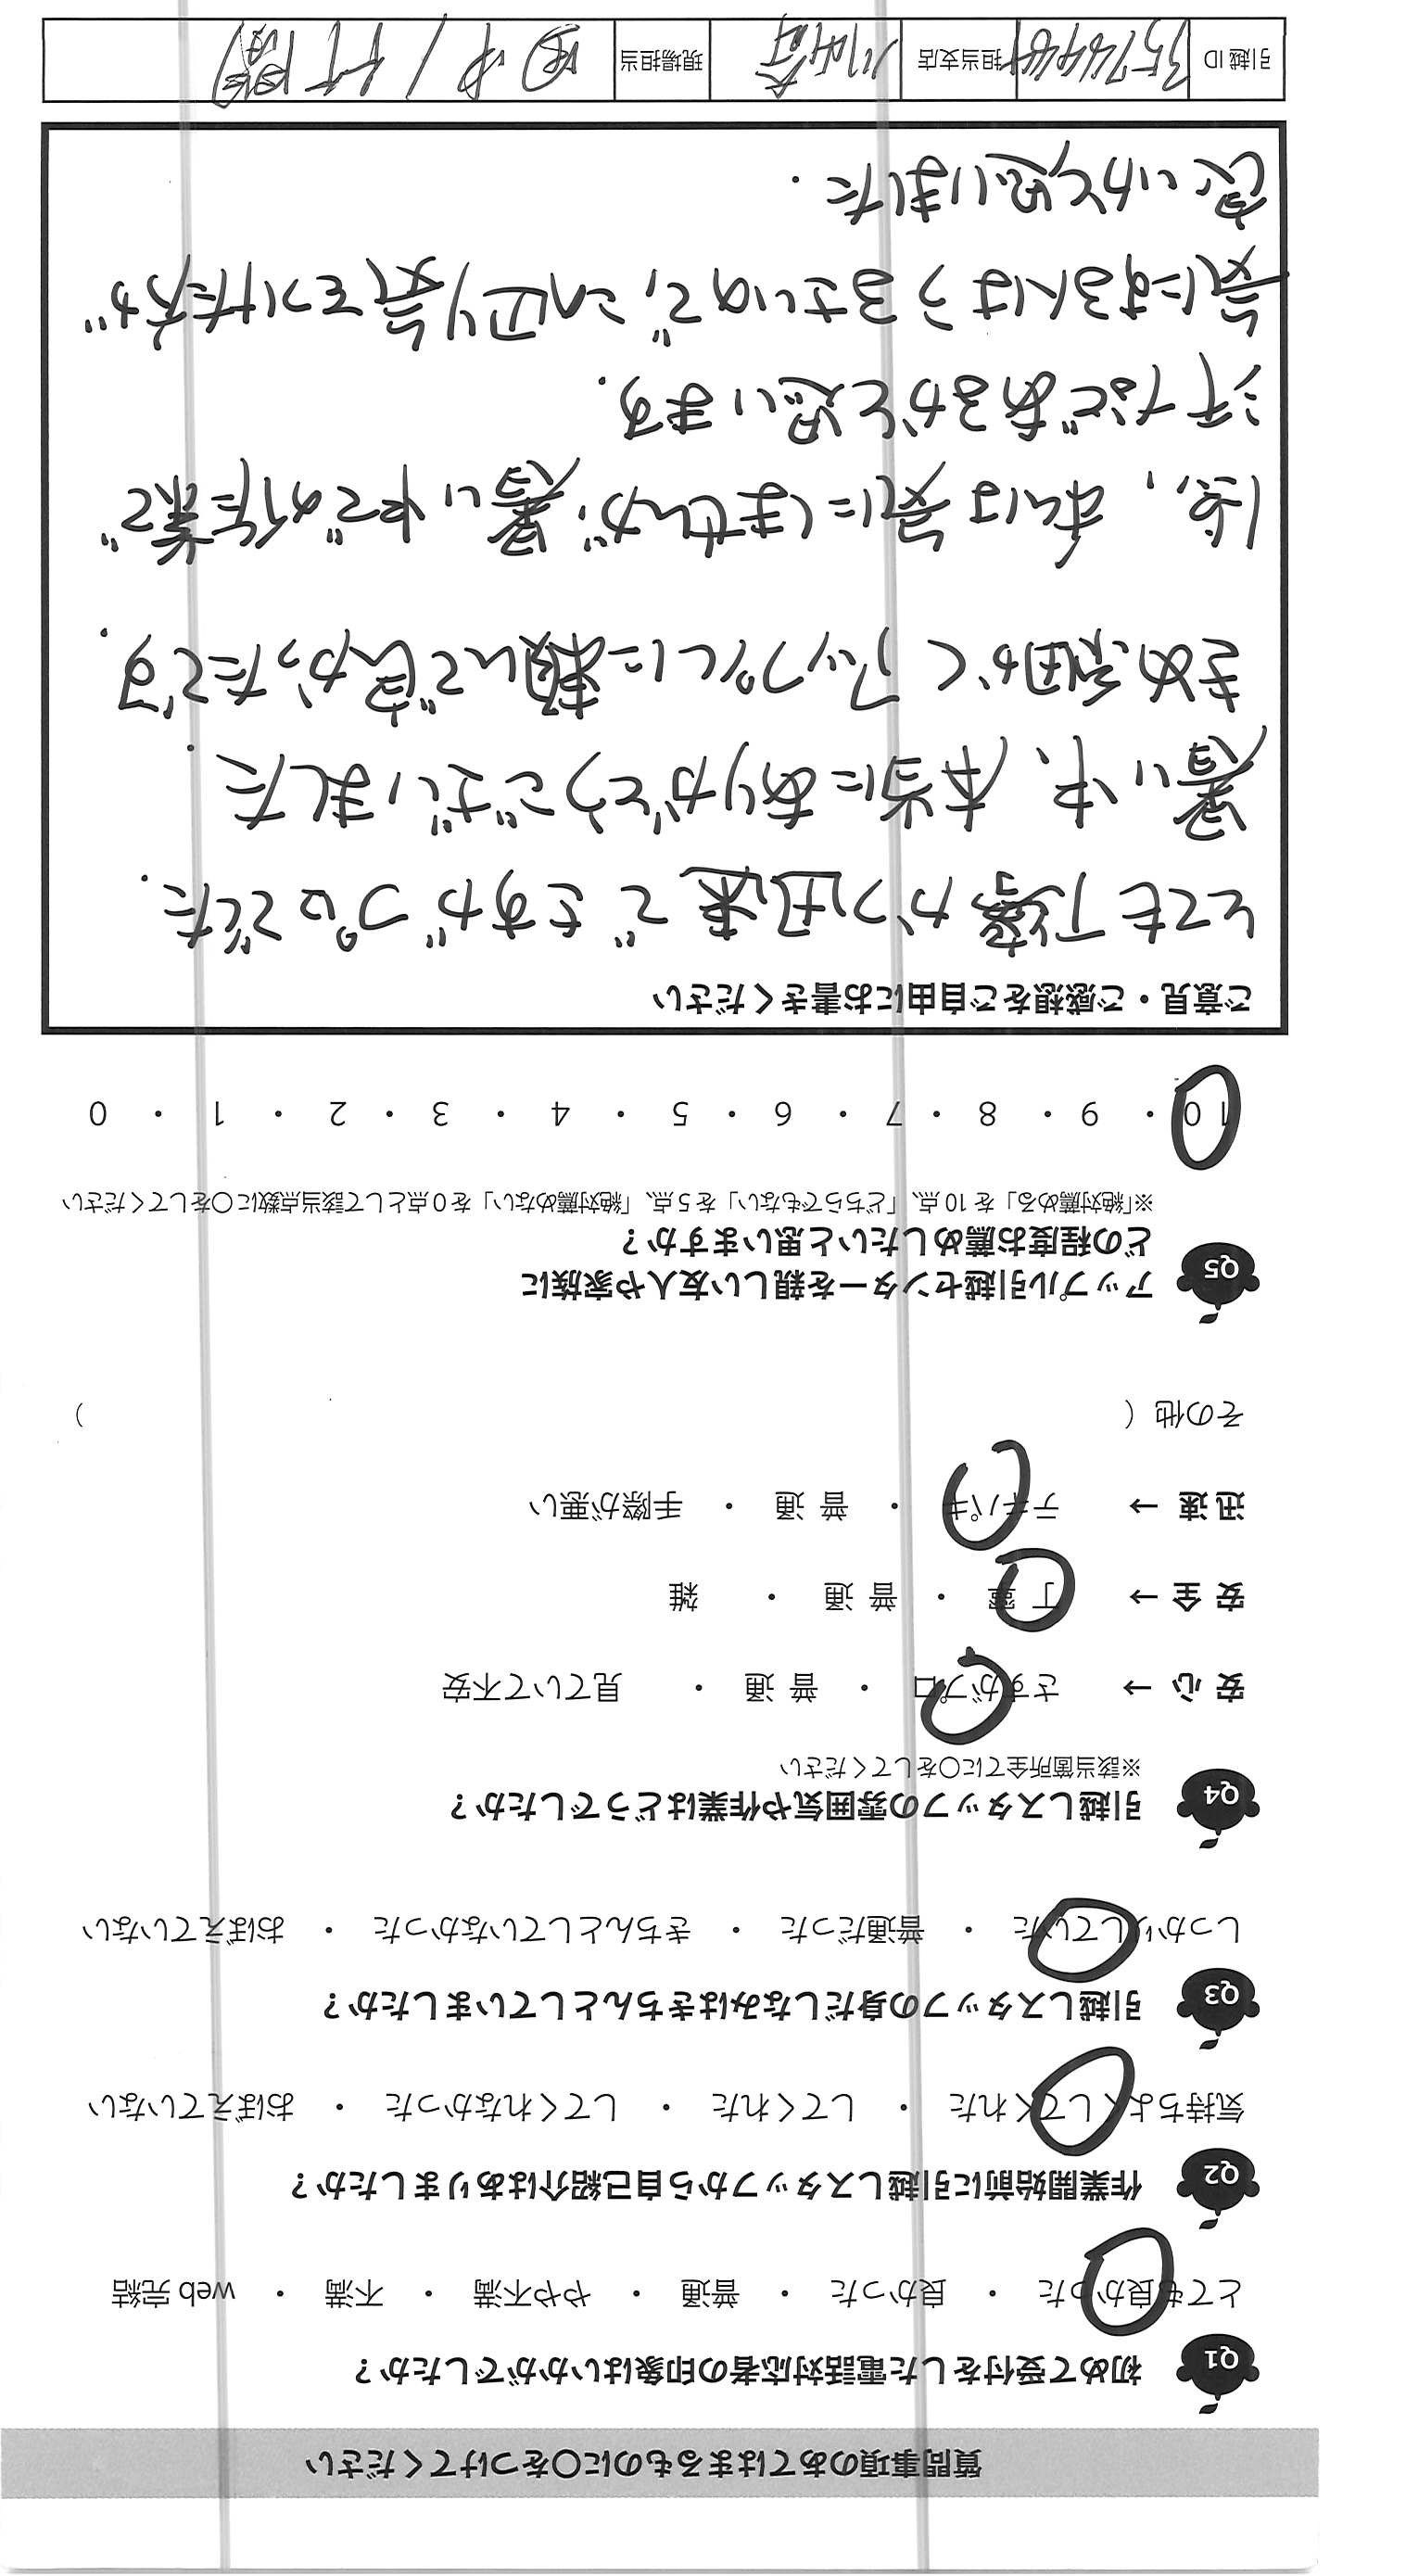 質問事項のあてはまるものに○をつけてください
Q1 初めて受付をした電話対応者の印象はいかがでしたか？
とても良かった ・ 良かった ・ 普通 ・ やや不満 ・ 不満 ・ web 完結
Q2 作業開始前に引越しスタッフから自己紹介はありましたか？
気持ちよくしてくれた ・ してくれた ・ してくれなかった ・ おぼえていない
Q3 引越しスタッフの身だしなみはきちんとしていましたか？
しっかりしていた ・ 普通だった ・ きちんとしていなかった ・ おぼえていない
Q4 引越しスタッフの雰囲気や作業はどうでしたか？
※該当箇所全てに○をしてください
安 心 → さすがプロ ・ 普 通 ・ 見ていて不安
安 全 → 丁 寧 ・ 普 通 ・ 雑
迅 速 → テキパキ ・ 普 通 ・ 手際が悪い
その他（ ）
Q5 アップル引越センターを親しい友人や家族に
どの程度お薦めしたいと思いますか？
※「絶対薦める」を 10 点、「どちらでもない」を 5 点、「絶対薦めない」を 0 点として該当点数に○をしてください
10 ・ 9 ・ 8 ・ 7 ・ 6 ・ 5 ・ 4 ・ 3 ・ 2 ・ 1 ・ 0
ご意見・ご感想をご自由にお書きください
とても丁寧かつ迅速でさすがプロでした.
暑い中、本当にありがとうございました.
きめ細かくアップルに頼んで良かったです.
私は気にしませんが、暑い中での作業で
汗などあるかと思います.
気にする人はうるさいので、この辺り気をつけた方が
良いかと思いました.
引越 ID 担当支店 川崎 現場担当 田中/